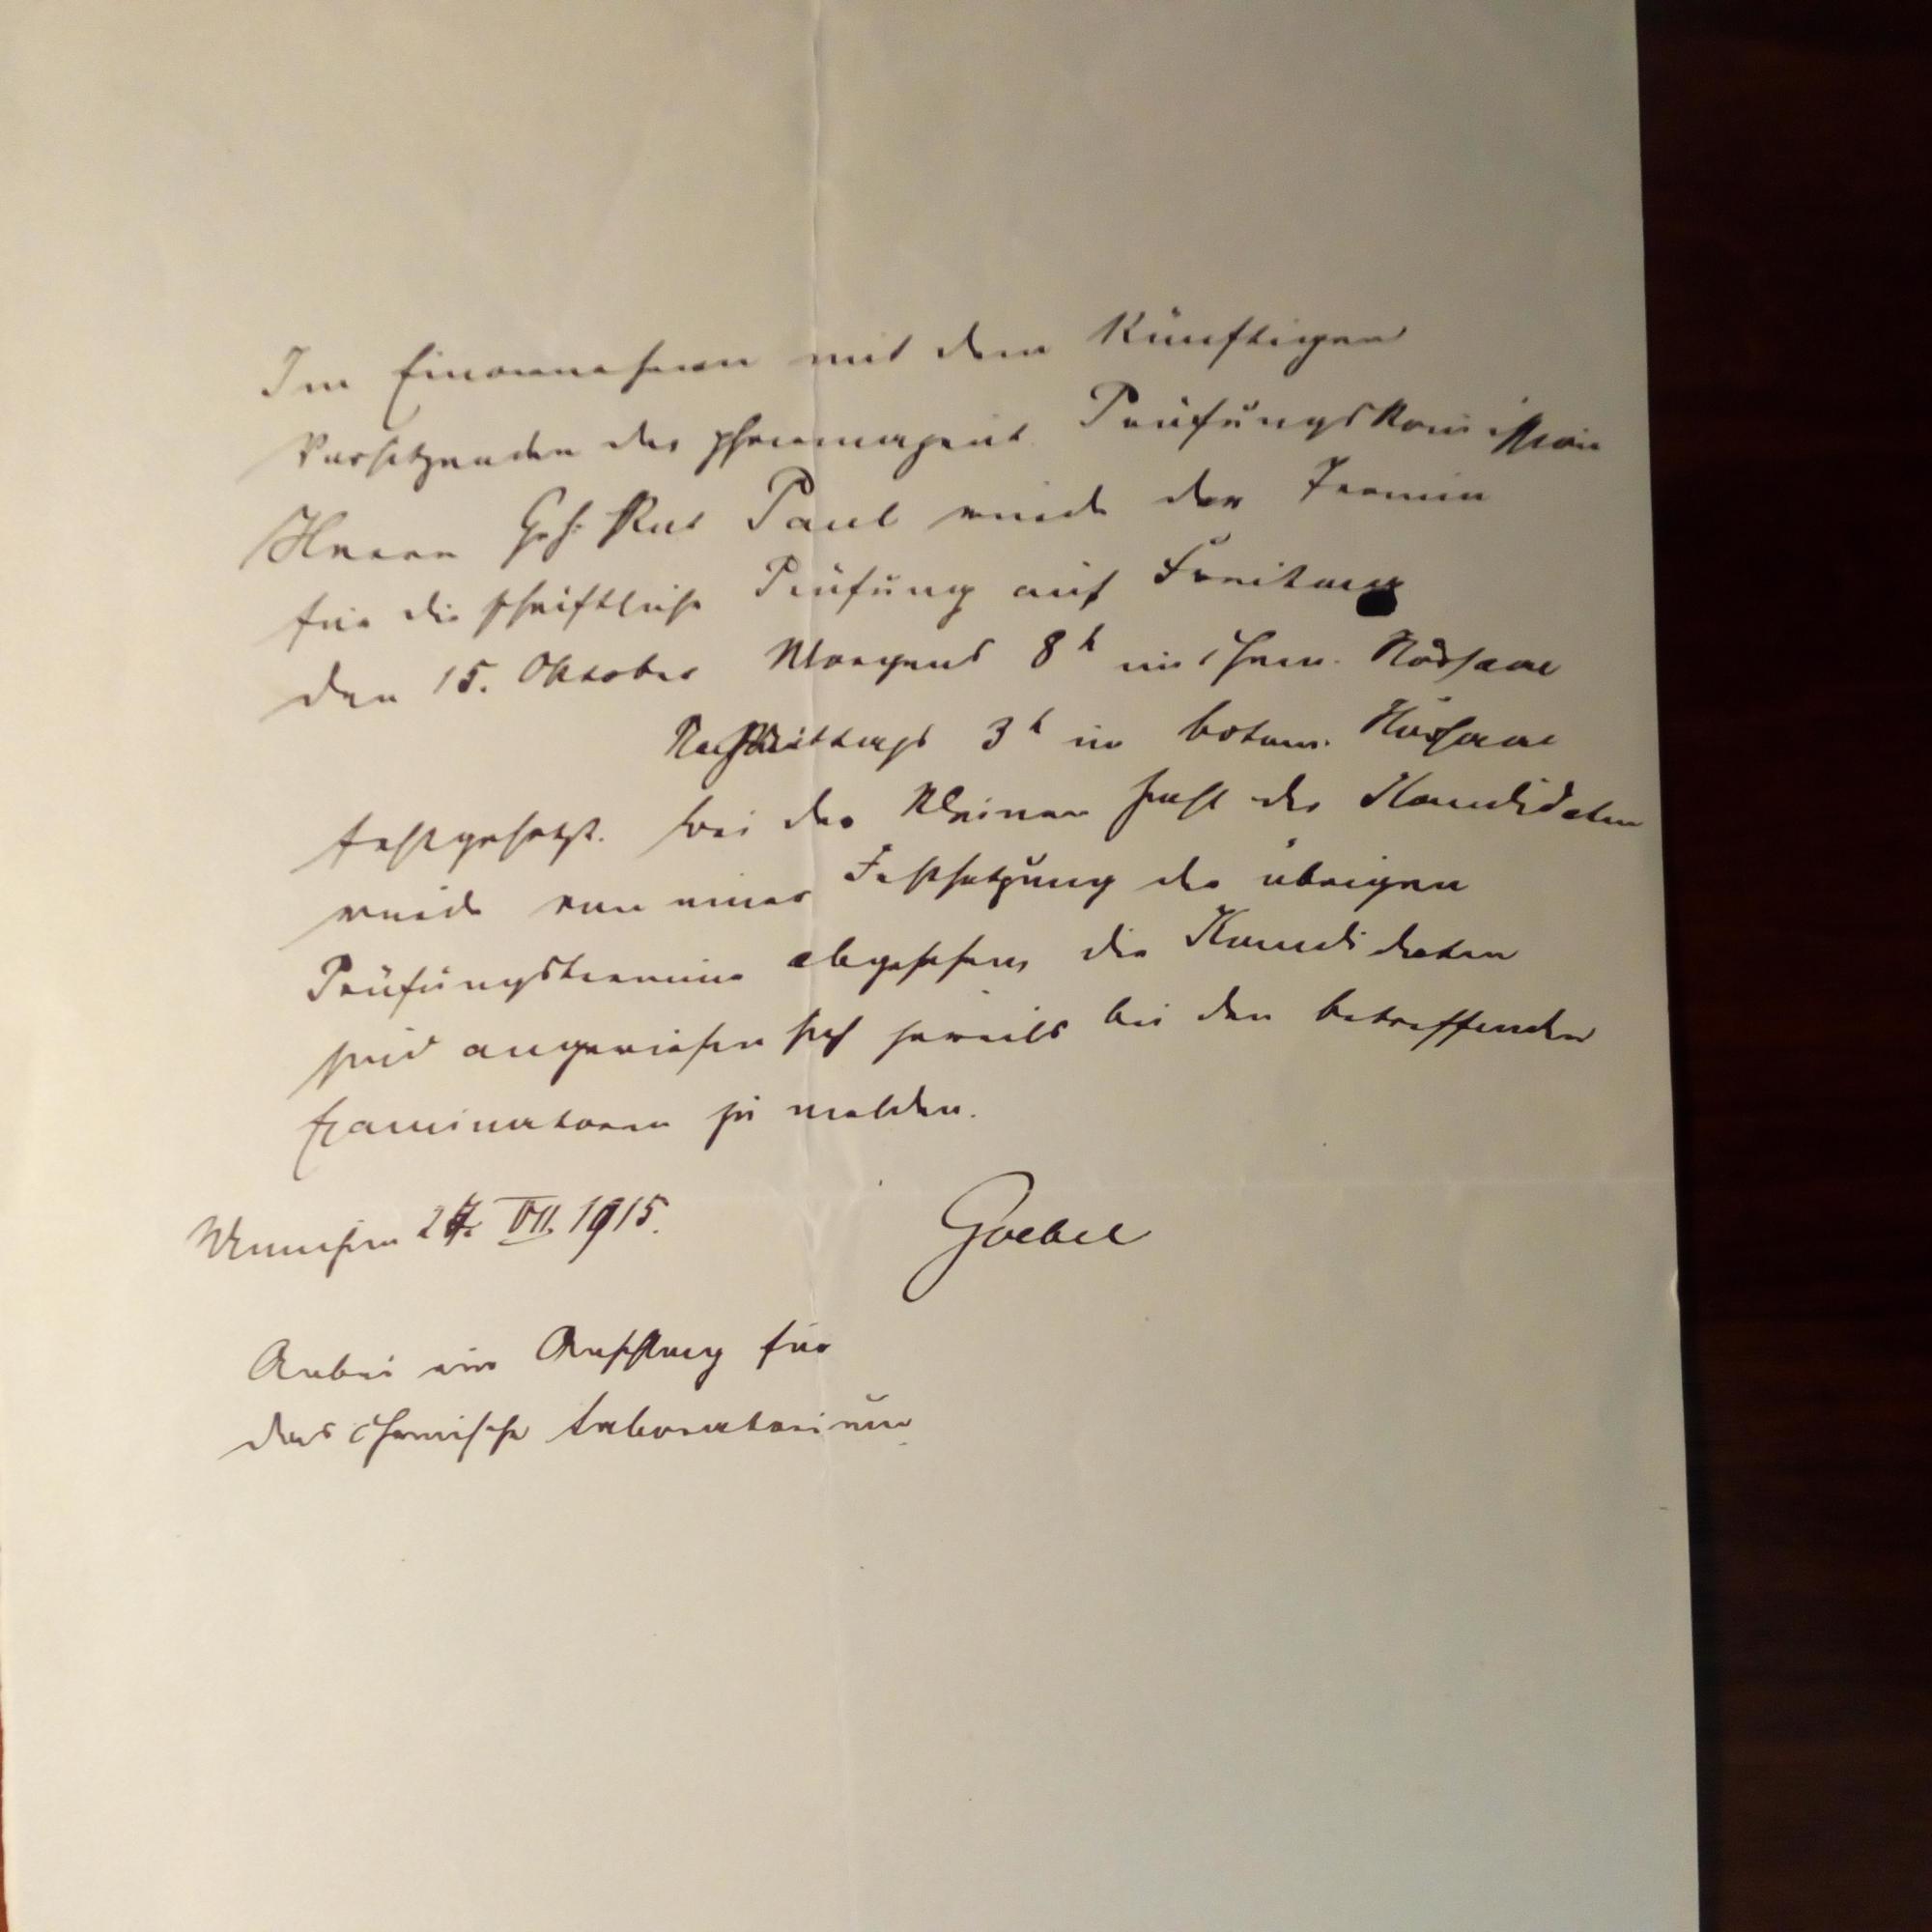 Im Einvernehmen mit dem künftigen
Vorsitzenden der pharmazeut. Prüfungskommission
Herrn Geh. Rat Paul wird der Termin
für die schriftliche Prüfung auf Freitag
den 15. Oktober Morgens 8h im chem. Hörsaal
Nachmittags 3h im botan. Hörsaal
festgesetzt. Bei der kleinen Zahl der Kandidaten
wird von einer Festsetzung der übrigen
Prüfungstermine abgesehen, die Kandidaten
sind angewiesen sich jeweils bei den betreffenden
Examinatoren zu melden.
München 27. VII. 1915. Goebel
Anbei ein Anschlag für
das chemische Laboratorium.